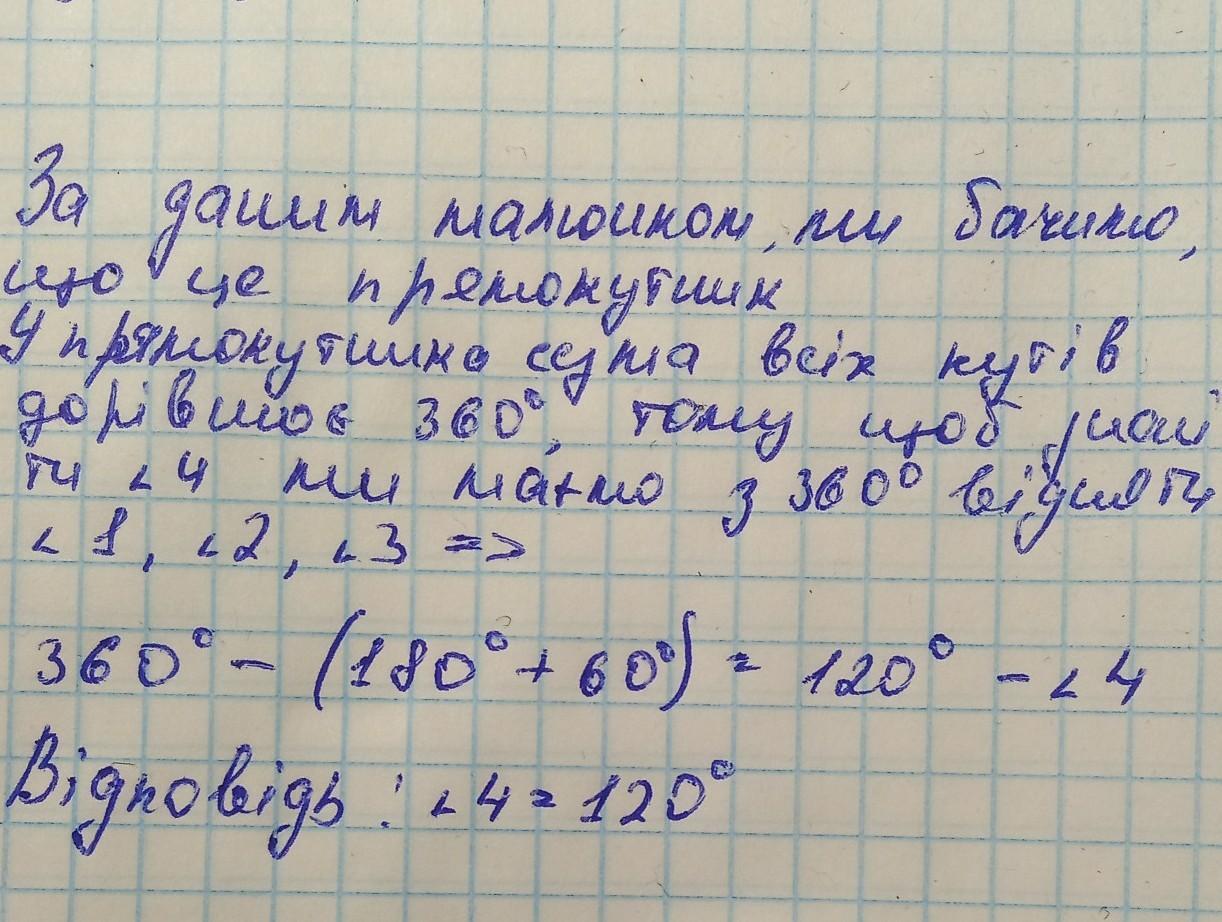 За даним малюнком, ми бачимо,
що це прямокутник
У прямокутника сума всіх кутів
дорівнює 360°, тому щоб знай
ти ∠4 ми маємо з 360° відняти
∠1, ∠2, ∠3 =>
360° - (180° + 60°) = 120° - ∠4
Відповідь : ∠4 = 120°